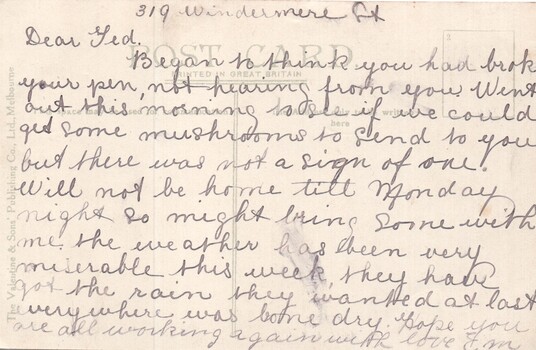 319 Windermere St
Dear Ted.
POST CARD
Began to think you had brok
PRINTED IN GREAT BRITAIN
your pen, not hearing from you. Went
out this morning to see if we could
here
get some mushrooms to send to you
but there was not a sign of one.
Will not be home till Monday
night so might bring some with
me. the weather has been very
miserable this week they have
got the rain they wanted at last
everywhere was bone dry. Hope you
are all working again with love F.M
The Valentine & Sons' Publishing Co., Ltd., Melbourne